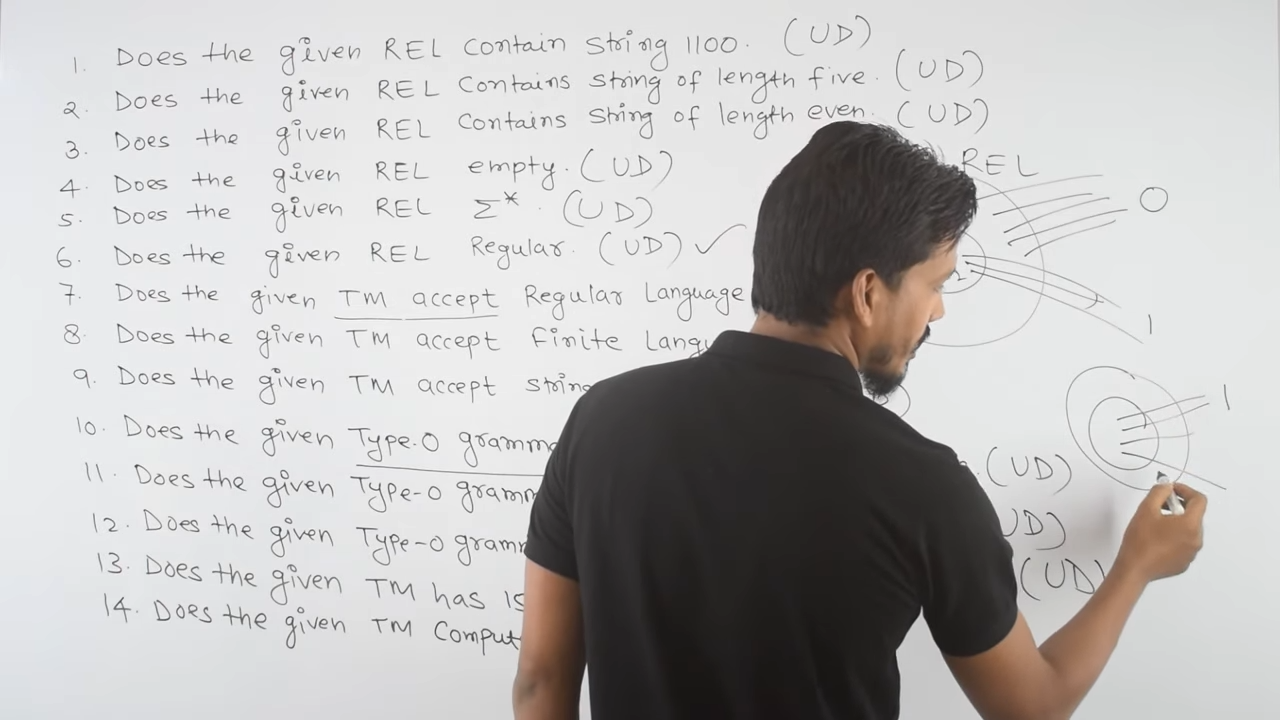 1. Does the given REL Contain string 1100. (UD)
2. Does the given REL Contains string of length five. (UD)
3. Does the given REL Contains string of length even. (UD)
4. Does the given REL empty. (UD)
5. Does the given REL Σ*. (UD)
6. Does the given REL Regular. (UD) ✓
7. Does the given TM accept Regular Language
8. Does the given TM accept finite
9. Does the given TM accept
10. Does the given Type-0
11. Does the given Type-0 (UD)
12. Does the given Type-0 UD)
13. Does the given TM has (UD)
14. Does the given TM
REL
0
1
1